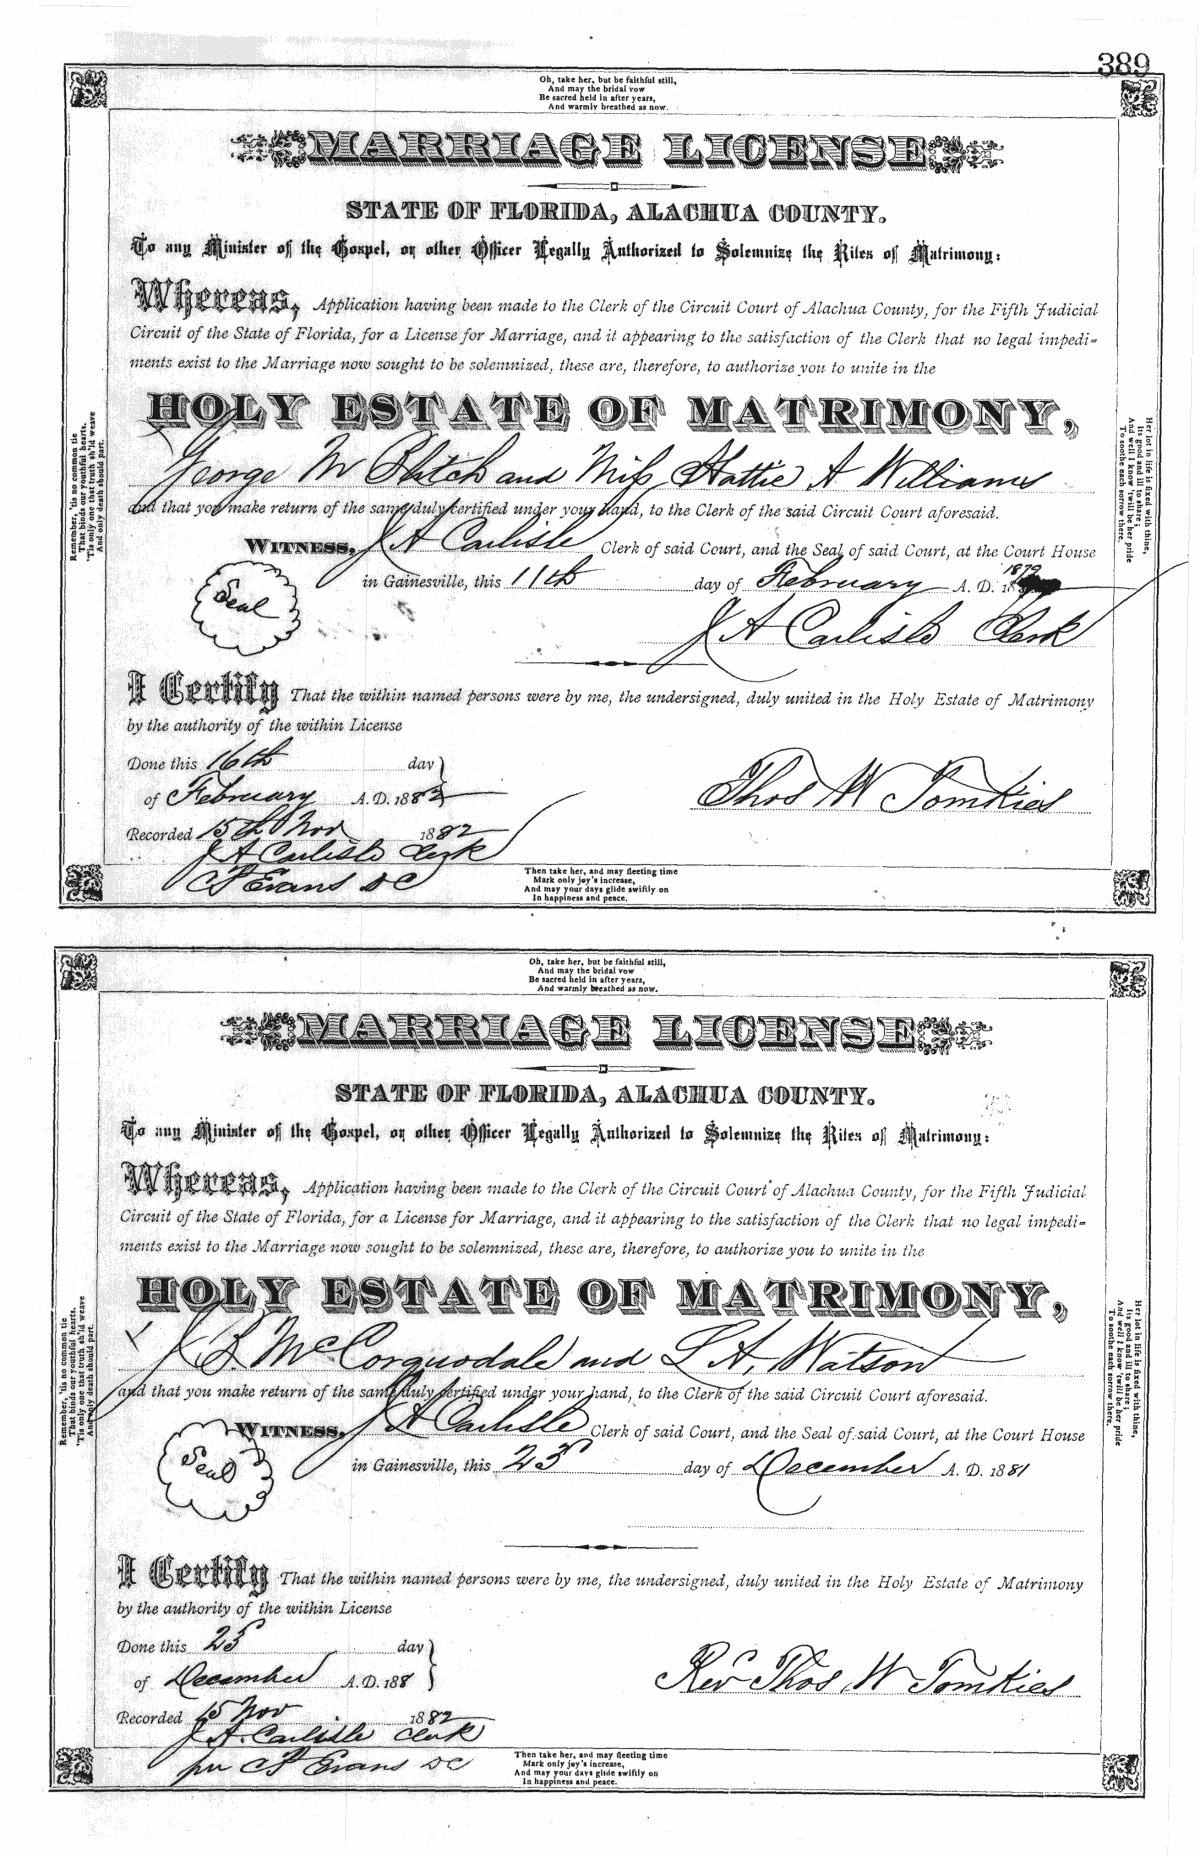 389
Oh, take her, but be faithful still,
And may the bridal vow
Be sacred held in after years,
And warmly breathed as now.
MARRIAGE LICENSE
STATE OF FLORIDA, ALACHUA COUNTY.
To any Minister of the Gospel, or other Officer Legally Authorized to Solemnize the Rites of Matrimony:
Whereas, Application having been made to the Clerk of the Circuit Court of Alachua County, for the Fifth Judicial
Circuit of the State of Florida, for a License for Marriage, and it appearing to the satisfaction of the Clerk that no legal impedi-
ments exist to the Marriage now sought to be solemnized, these are, therefore, to authorize you to unite in the
HOLY ESTATE OF MATRIMONY,
George W Blitch and Miss Hattie A Williams
and that you make return of the same duly certified under your hand, to the Clerk of the said Circuit Court aforesaid.
WITNESS, J A Carlisle Clerk of said Court, and the Seal of said Court, at the Court House
1879
in Gainesville, this 11th day of February A. D. 18
Seal
J A Carlisle Clerk
I Certify That the within named persons were by me, the undersigned, duly united in the Holy Estate of Matrimony
by the authority of the within License
Done this 16th day
of February A. D. 1882
Thos W Tomkies
Recorded 15th Nov 1882
J A Carlisle Clerk
C P Evans DC
Then take her, and may fleeting time
Mark only joy's increase,
And may your days glide swiftly on
In happiness and peace.
Remember, 'tis no common tie
That binds our youthful hearts,
'Tis only one that truth sh'ld weave
And only death should part.
Her lot in life is fixed with thine,
Its good and ill to share;
And well I know 'twill be her pride
To soothe each sorrow there.
Oh, take her, but be faithful still,
And may the bridal vow
Be sacred held in after years,
And warmly breathed as now.
MARRIAGE LICENSE
STATE OF FLORIDA, ALACHUA COUNTY.
To any Minister of the Gospel, or other Officer Legally Authorized to Solemnize the Rites of Matrimony:
Whereas, Application having been made to the Clerk of the Circuit Court of Alachua County, for the Fifth Judicial
Circuit of the State of Florida, for a License for Marriage, and it appearing to the satisfaction of the Clerk that no legal impedi-
ments exist to the Marriage now sought to be solemnized, these are, therefore, to authorize you to unite in the
HOLY ESTATE OF MATRIMONY,
J L McCorquodale and L A, Watson
and that you make return of the same duly certified under your hand, to the Clerk of the said Circuit Court aforesaid.
WITNESS, J A Carlisle Clerk of said Court, and the Seal of said Court, at the Court House
in Gainesville, this 25 day of December A. D. 1881
Seal
I Certify That the within named persons were by me, the undersigned, duly united in the Holy Estate of Matrimony
by the authority of the within License
Done this 25 day
of December A. D. 188
Rev Thos W Tomkies
Recorded 15 Nov 1882
J. A. Carlisle Clerk
per C P Evans DC
Then take her, and may fleeting time
Mark only joy's increase,
And may your days glide swiftly on
In happiness and peace.
Remember, 'tis no common tie
That binds our youthful hearts,
'Tis only one that truth sh'ld weave
And only death should part.
Her lot in life is fixed with thine,
Its good and ill to share;
And well I know 'twill be her pride
To soothe each sorrow there.